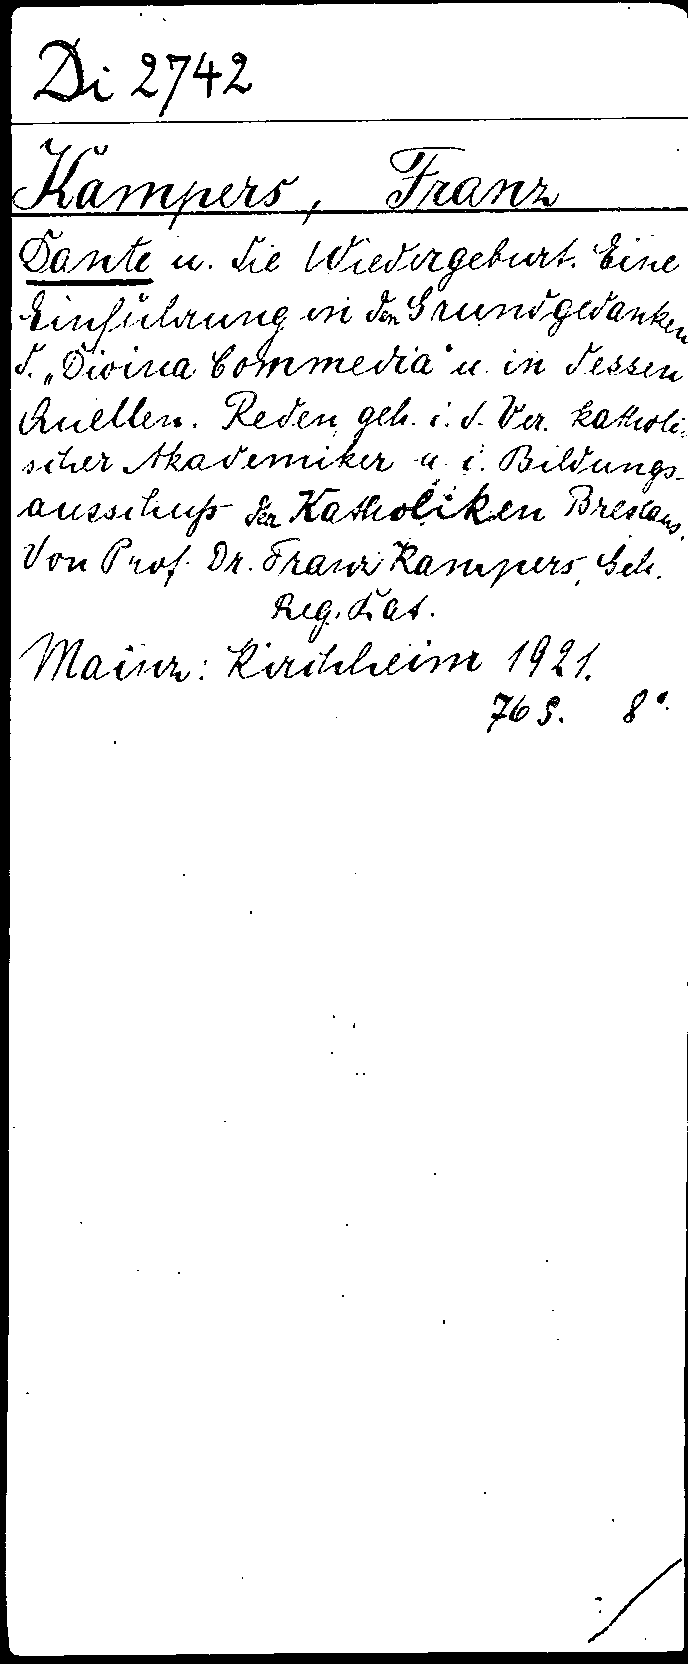 Di 2742
Kampers, Franz
Dante u. die Wiedergeburt. Eine
Einführung in den Grundgedanken
d. „Divina Commedia" u. in dessen
Quellen. Reden, geh. i. d. Ver. katholi-
scher Akademiker u. i. Bildungs-
ausschuß der Katholiken Breslaus.
Von Prof. Dr. Franz Kampers, Geh.
Reg. Rat.
Mainz: Kirchheim 1921.
76 S. 8°.